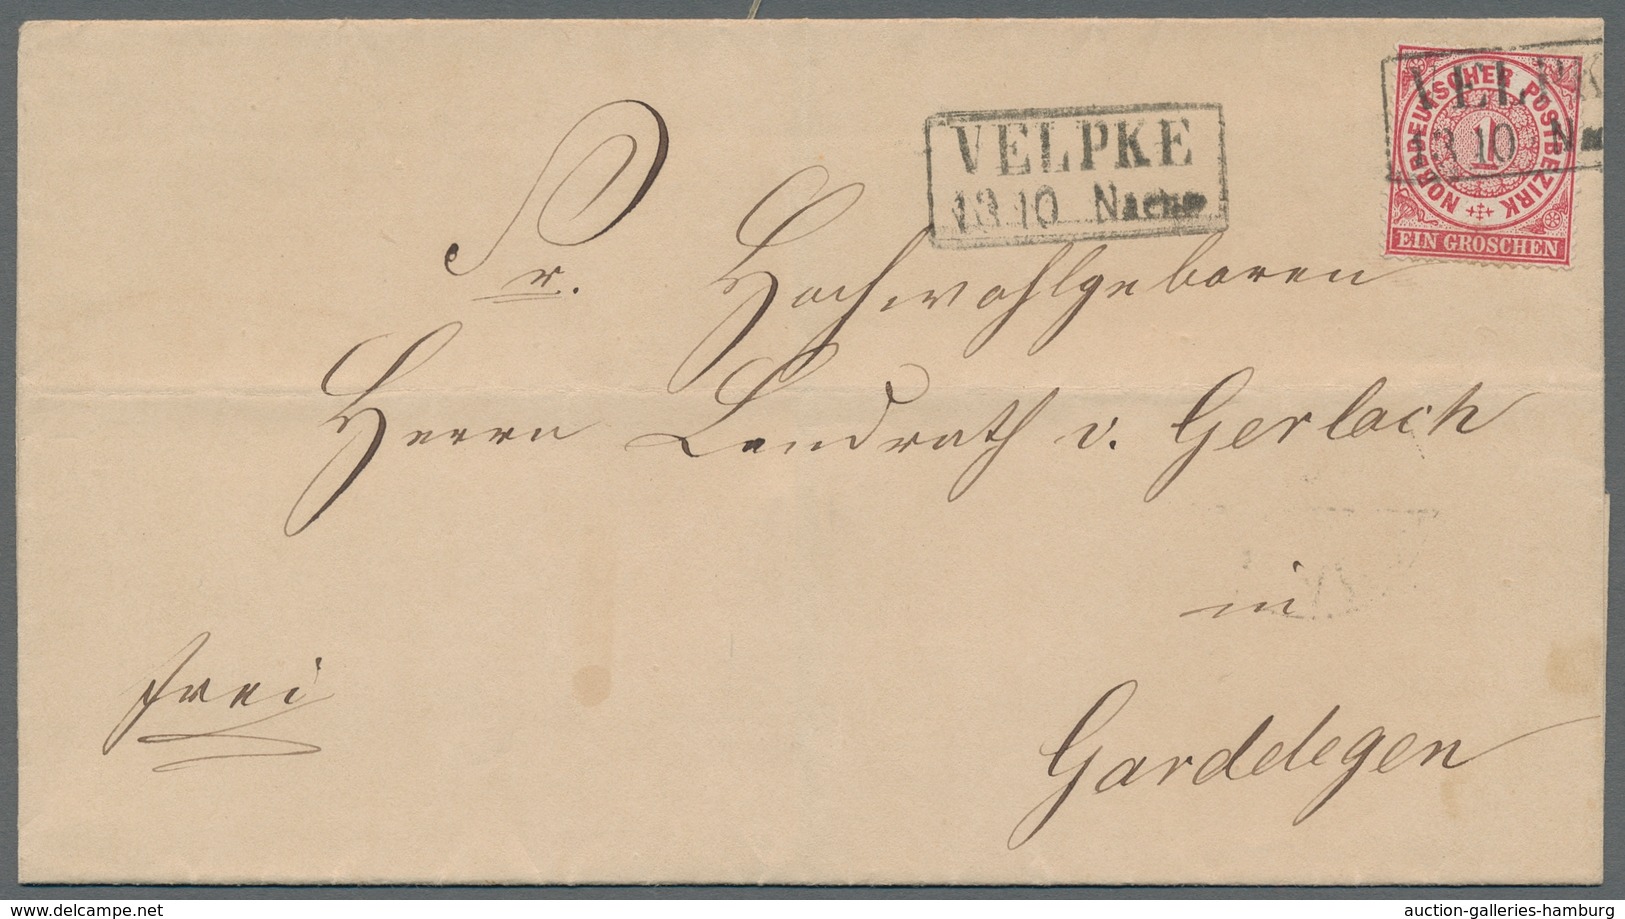 VELPKE
13 10 Nachm
VELPK
13 10 Na
NORDDEUTSCHER POSTBEZIRK
1
EIN GROSCHEN
Sr. Hochwohlgeboren
Herrn Landrath v. Gerlach
in
frei
Gardelegen
auction-galleries-hamburg